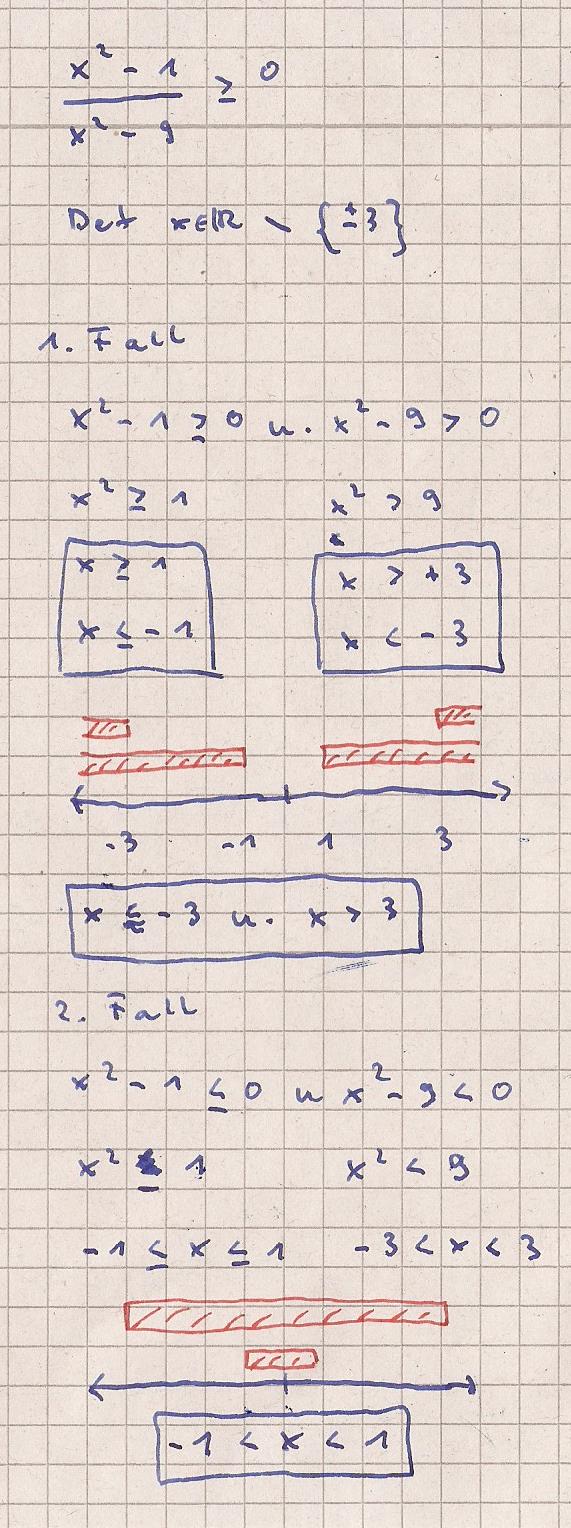 x² - 1 / x² - 9 ≥ 0
Def x∈ℝ \ {±3}
1. Fall
x² - 1 ≥ 0 u. x² - 9 > 0
x² ≥ 1 x² > 9
x ≥ 1 x > +3
x ≤ -1 x < -3
-3 -1 1 3
x < -3 u. x > 3
2. Fall
x² - 1 ≤ 0 u x² - 9 < 0
x² ≤ 1 x² < 9
-1 ≤ x ≤ 1 -3 < x < 3
-1 < x < 1